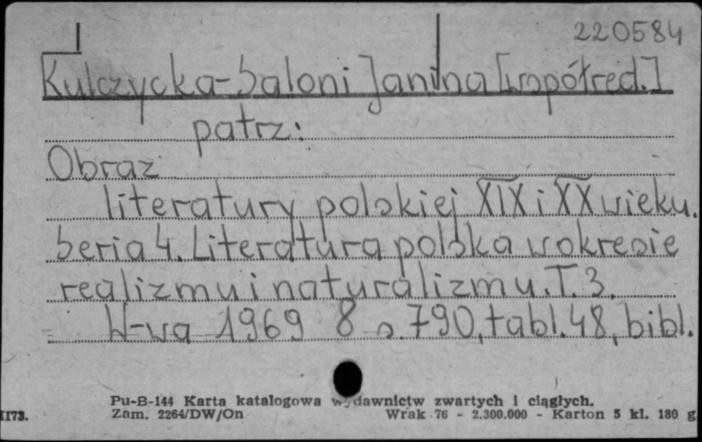 220584
Kulczycka-Saloni Janina [współred.]
patrz:
Obraz
literatury polskiej XIX i XX wieku.
Seria 4. Literatura polska w okresie
realizmu i naturalizmu. T. 3.
W-wa 1969 8 s. 790, tabl. 48, bibl.
Pu-B-144 Karta katalogowa wydawnictw zwartych i ciągłych.
1173. Zam. 2264/DW/On Wrak 76 - 2.300.000 - Karton 5 kl. 180 g